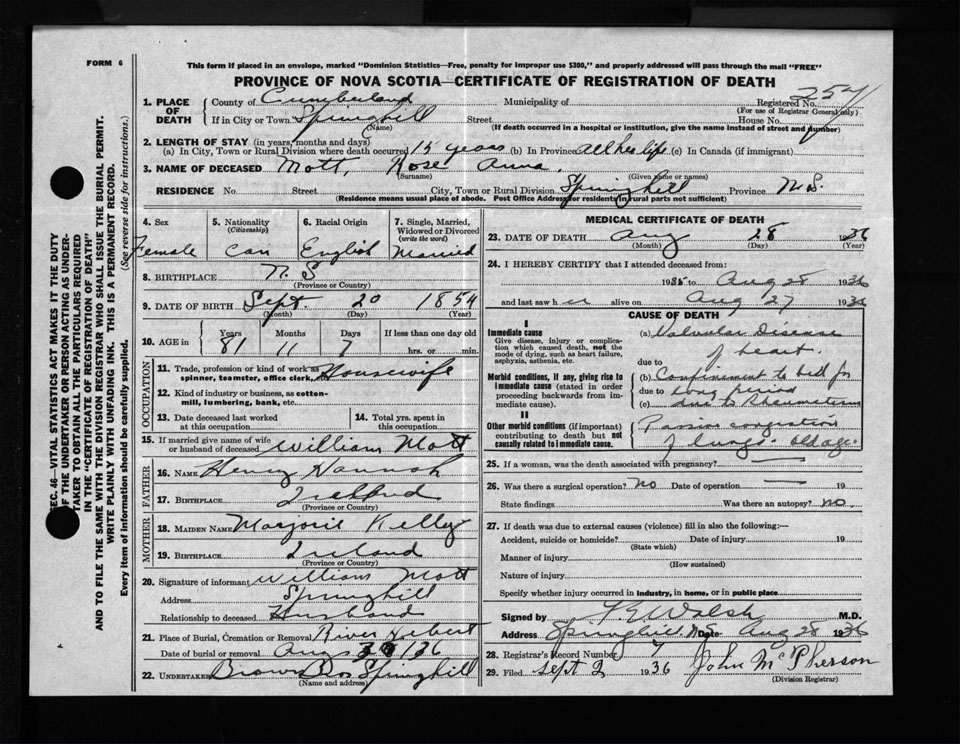 FORM 6
This form if placed in an envelope, marked "Dominion Statistics—Free, penalty for improper use $300," and properly addressed will pass through the mail "FREE"
PROVINCE OF NOVA SCOTIA—CERTIFICATE OF REGISTRATION OF DEATH
1. PLACE OF DEATH County of Cumberland Municipality of Registered No. 254
(For use of Registrar General only)
If in City or Town Springhill Street House No.
(Name) (If death occurred in a hospital or institution, give the name instead of street and number)
2. LENGTH OF STAY (in years, months and days)
(a) In City, Town or Rural Division where death occurred 15 years (b) In Province All her life (c) In Canada (if immigrant)
3. NAME OF DECEASED Mott, Rose Anna,
(Surname) (Given name or names)
RESIDENCE No Street City, Town or Rural Division Springhill Province N.S.
(Residence means usual place of abode. Post Office Address for residents in rural parts not sufficient)
4. Sex 5. Nationality 6. Racial Origin 7. Single, Married, Widowed or Divorced
(Citizenship) (write the word)
Female Can English Married
8. BIRTHPLACE N.S
(Province or Country)
9. DATE OF BIRTH Sept. 20 1854
(Month) (Day) (Year)
10. AGE in Years Months Days If less than one day old
81 11 7 hrs. or min.
OCCUPATION
11. Trade, profession or kind of work as spinner, teamster, office clerk, Housewife
12. Kind of industry or business, as cotton-mill, lumbering, bank, etc.
13. Date deceased last worked at this occupation 14. Total yrs. spent in this occupation
15. If married give name of wife or husband of deceased William Mott
FATHER
16. NAME Henry Hannah
17. BIRTHPLACE Ireland
(Province or Country)
MOTHER
18. MAIDEN NAME Marjorie Kelly
19. BIRTHPLACE Ireland
(Province or Country)
20. Signature of informant William Mott
Address Springhill
Relationship to deceased Husband
21. Place of Burial, Cremation or Removal River Hebert
Date of burial or removal Aug 30/36
22. UNDERTAKER Brown Bros Springhill
(Name and address)
MEDICAL CERTIFICATE OF DEATH
23. DATE OF DEATH Aug 28 1936
(Month) (Day) (Year)
24. I HEREBY CERTIFY that I attended deceased from:
193 to Aug 28 1936
and last saw h er alive on Aug 27 1936
CAUSE OF DEATH
I
Immediate cause
Give disease, injury or complication which caused death, not the mode of dying, such as heart failure, asphyxia, asthenia, etc.
(a) Valvular Disease
of heart.
due to
Morbid conditions, if any, giving rise to immediate cause (stated in order proceeding backwards from immediate cause).
(b) Confinement to bed for
due to long period
(c) due to Rheumatism
II
Other morbid conditions (if important) contributing to death but not causally related to immediate cause.
Passive congestion
of lungs - old age.
25. If a woman, was the death associated with pregnancy? —
26. Was there a surgical operation? No Date of operation — 19
State findings Was there an autopsy? No.
27. If death was due to external causes (violence) fill in also the following:—
Accident, suicide or homicide? Date of injury 19
(State which)
Manner of injury
(How sustained)
Nature of injury
Specify whether injury occurred in industry, in home, or in public place
Signed by Walsh M.D.
Address Springhill N.S Date Aug 28 1936
28. Registrar's Record Number 7
29. Filed Sept 2 1936 John McPherson
(Division Registrar)
SEC. 46—VITAL STATISTICS ACT MAKES IT THE DUTY
OF THE UNDERTAKER OR PERSON ACTING AS UNDER-
TAKER TO OBTAIN ALL THE PARTICULARS REQUIRED
IN THE "CERTIFICATE OF REGISTRATION OF DEATH"
AND TO FILE THE SAME WITH THE DIVISION REGISTRAR WHO SHALL ISSUE THE BURIAL PERMIT.
WRITE PLAINLY WITH UNFADING INK. THIS IS A PERMANENT RECORD.
Every item of information should be carefully supplied. (See reverse side for instructions.)